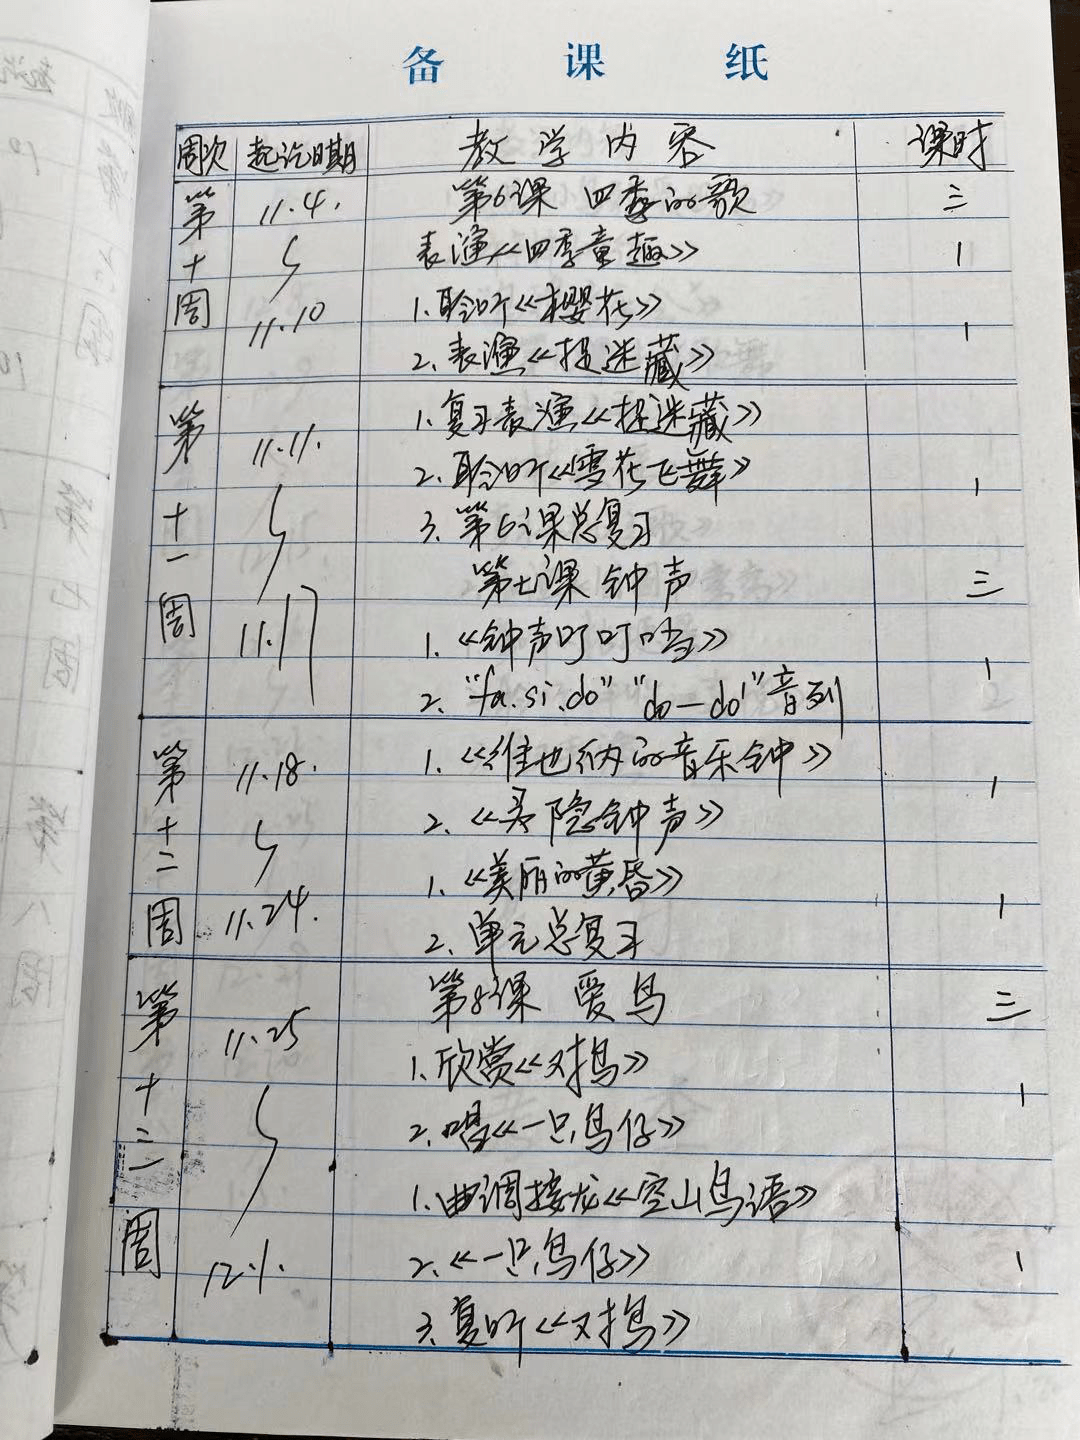 备 课 纸
周次 起讫日期 教学内容 课时
第十周 11.4. 第6课 四季的歌 三
表演《四季童趣》 1
1.聆听《樱花》
11.10 1
2.表演《捉迷藏》
第十一周 1.复习表演《捉迷藏》
11.11.
2.聆听《雪花飞舞》 1
3.第6课总复习
第七课 钟声 三
11.17 1.《钟声叮叮当》
2."fa.si.do" "do—do¹"音列 1
第十二周 11.18. 1.《维也纳的音乐钟》 1
2.《灵隐钟声》
1.《美丽的黄昏》
11.24. 2.单元总复习 1
第十三周 第8课 爱鸟 三
11.25 1.欣赏《对鸟》
2.唱《一只鸟仔》 1
1.曲调接龙《空山鸟语》
12.1. 2.《一只鸟仔》 1
3.复听《对鸟》